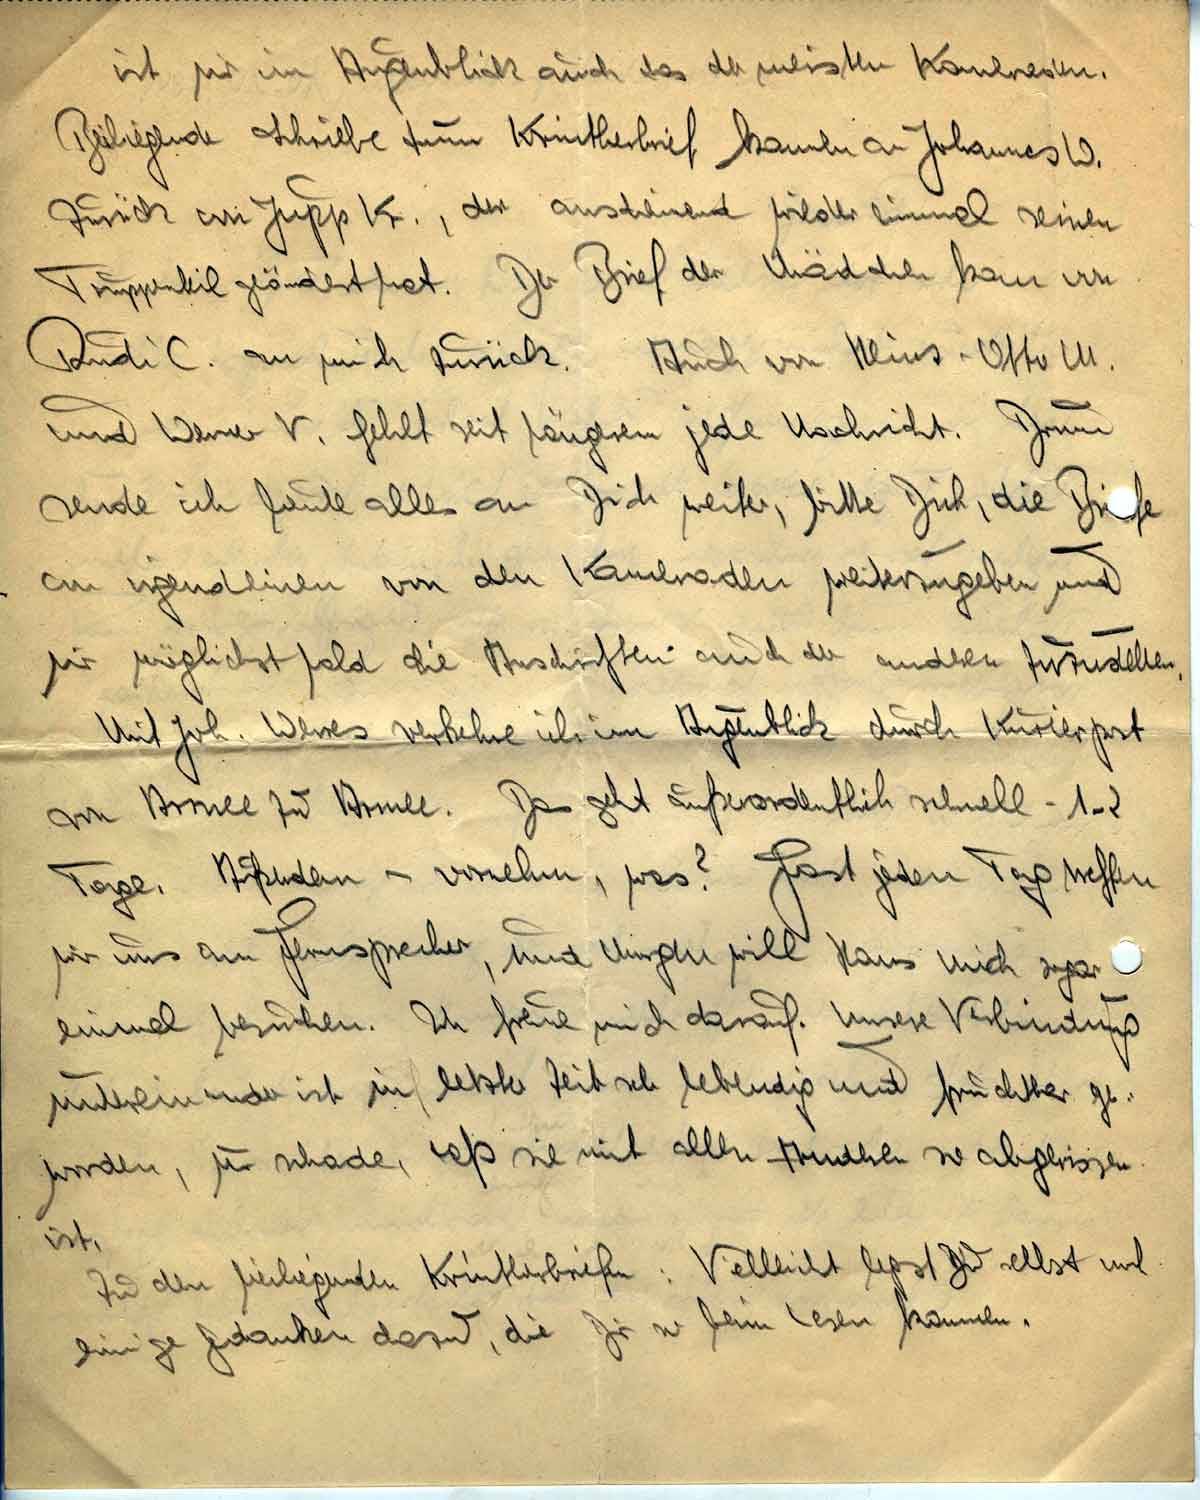 ist mir im Augenblick auch das der meisten Kameraden.
Beiliegende Schriebe zum Korintherbrief kamen an Johannes W.
zurück von Jupp K., der anscheinend wieder einmal seinen
Truppenteil geändert hat. Der Brief der Mädchen kam von
Rudi C. an mich zurück. Auch von Klaus-Otto M.
und Werner V. fehlt seit längerem jede Nachricht. Drum
sende ich heute alles an Dich weiter, bitte Dich, die Briefe
an irgendeinen von den Kameraden weiterzugeben und
mir möglichst bald die Anschriften auch der anderen zuzustellen.
Mit Joh. Wewes verkehre ich im Augenblick durch Kurierpost
von Armee zu Armee. Das geht außerordentlich schnell - 1-2
Tage. Außerdem - vornehm, was? Fast jeden Tag treffen
wir uns am Fernsprecher, und Morgen will Hans mich sogar
einmal besuchen. Ich freue mich darauf. Unsere Verbindung
untereinander ist in letzter Zeit sehr lebendig und fruchtbar ge-
worden, nur schade, daß sie mit allen anderen so abgerissen
ist.
Zu den beiliegenden Korintherbriefen: Vielleicht legst Du selbst noch
einige Gedanken dazu, die Dir so beim Lesen kommen.